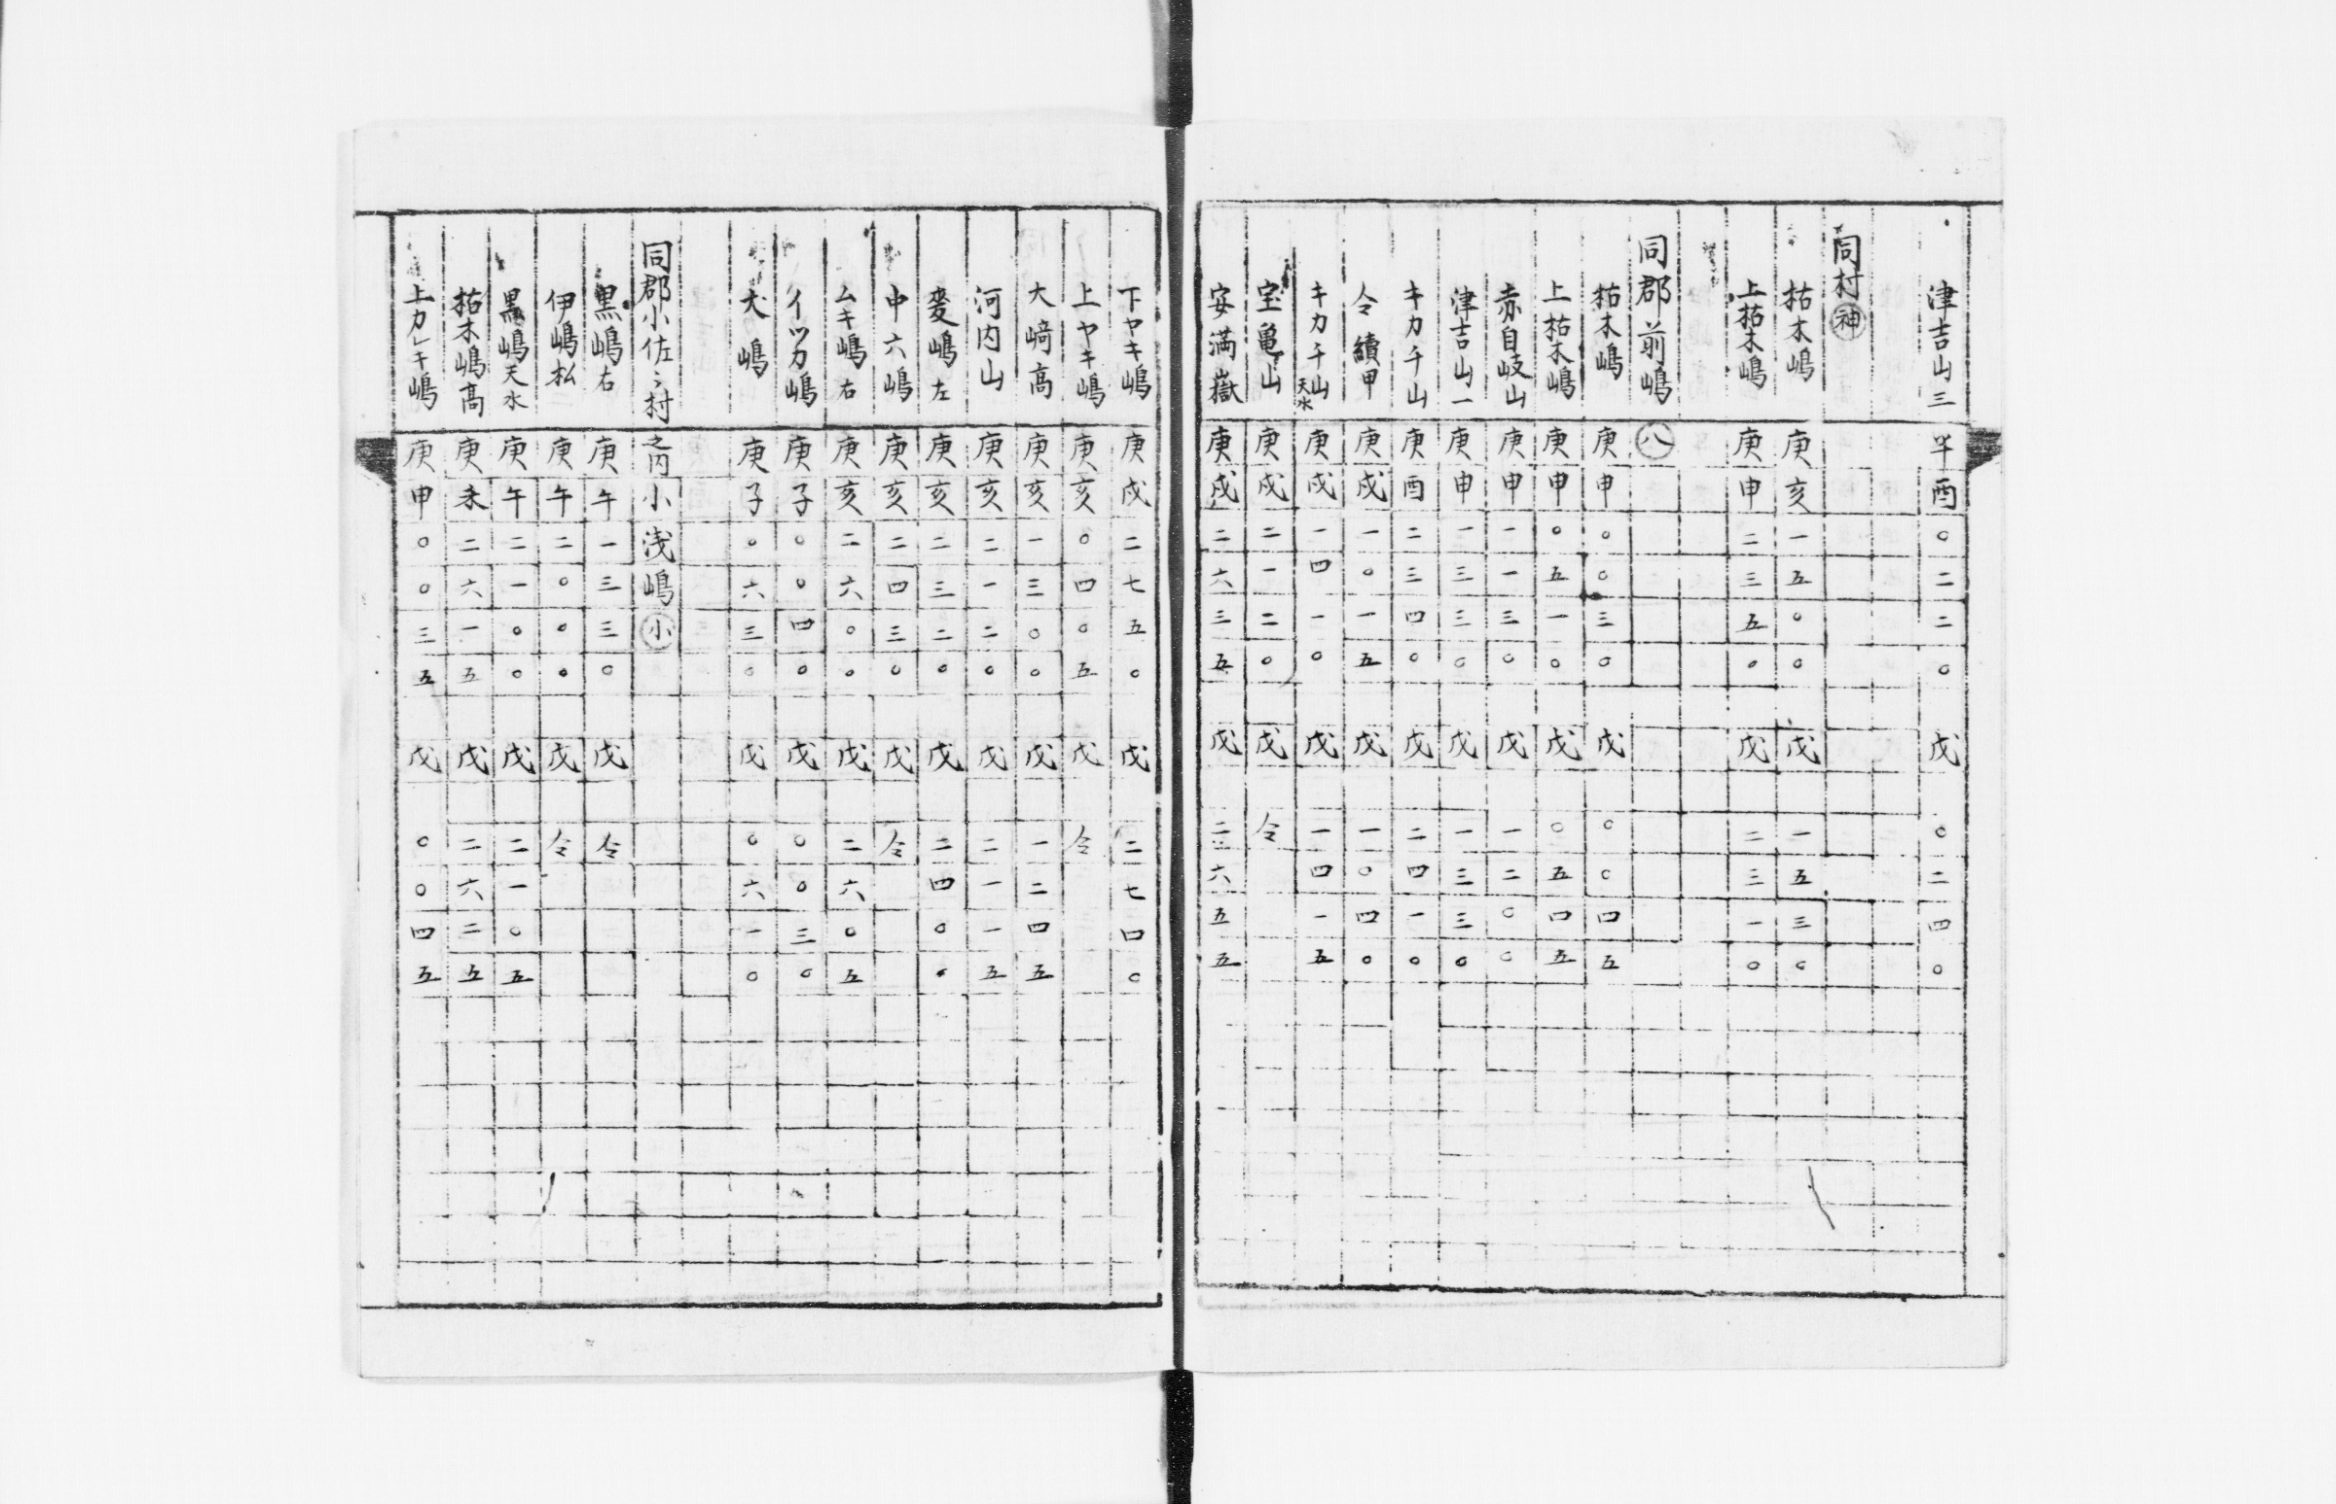 津吉山三 酉 〇二二〇 戊 〇二四〇
同村 神
柘木嶋 庚亥 一五〇〇 戊 一五三〇
上柘木嶋 庚申 二三五〇 戊 二三一〇
同郡前嶋 八
柘木嶋 庚申 〇〇三〇 戊 〇〇四五
上柘木嶋 庚申 〇五一〇 戊 〇五四五
赤自岐山 庚申 一一三〇 戊 一二〇〇
津吉山一 庚申 一三三〇 戊 一三三〇
キカチ山 庚酉 二三四〇 戊 二四一〇
仝續甲 庚戌 一〇一五 戊 一〇四〇
キカチ山天水 庚戌 一四一〇 戊 一四一五
宝亀山 庚戌 二一二〇 戊 仝
安満嶽 庚戌 二六三五 戊 二六五五
下ヤキ嶋 庚戌 二七五〇 戊 二七四〇
上ヤキ嶋 庚亥 〇四〇五 戊 仝
大﨑高 庚亥 一三〇〇 戊 一二四五
河内山 庚亥 二一二〇 戊 二一一五
麦嶋左 庚亥 二三二〇 戊 二四〇〇
中六嶋 庚亥 二四三〇 戊 仝
ムキ嶋右 庚亥 二六〇〇 戊 二六〇五
イツカ嶋 庚子 〇〇四〇 戊 〇〇三〇
大嶋 庚子 〇六三〇 戊 〇六一〇
同郡小佐〻村之内小浅嶋 小
黒嶋右 庚午 一三三〇 戊 仝
伊嶋松 庚午 二〇〇〇 戊 仝
黒嶋天水 庚午 二一〇〇 戊 二一〇五
柘木嶋髙 庚未 二六一五 戊 二六二五
上カレキ嶋 庚申 〇〇三五 戊 〇〇四五